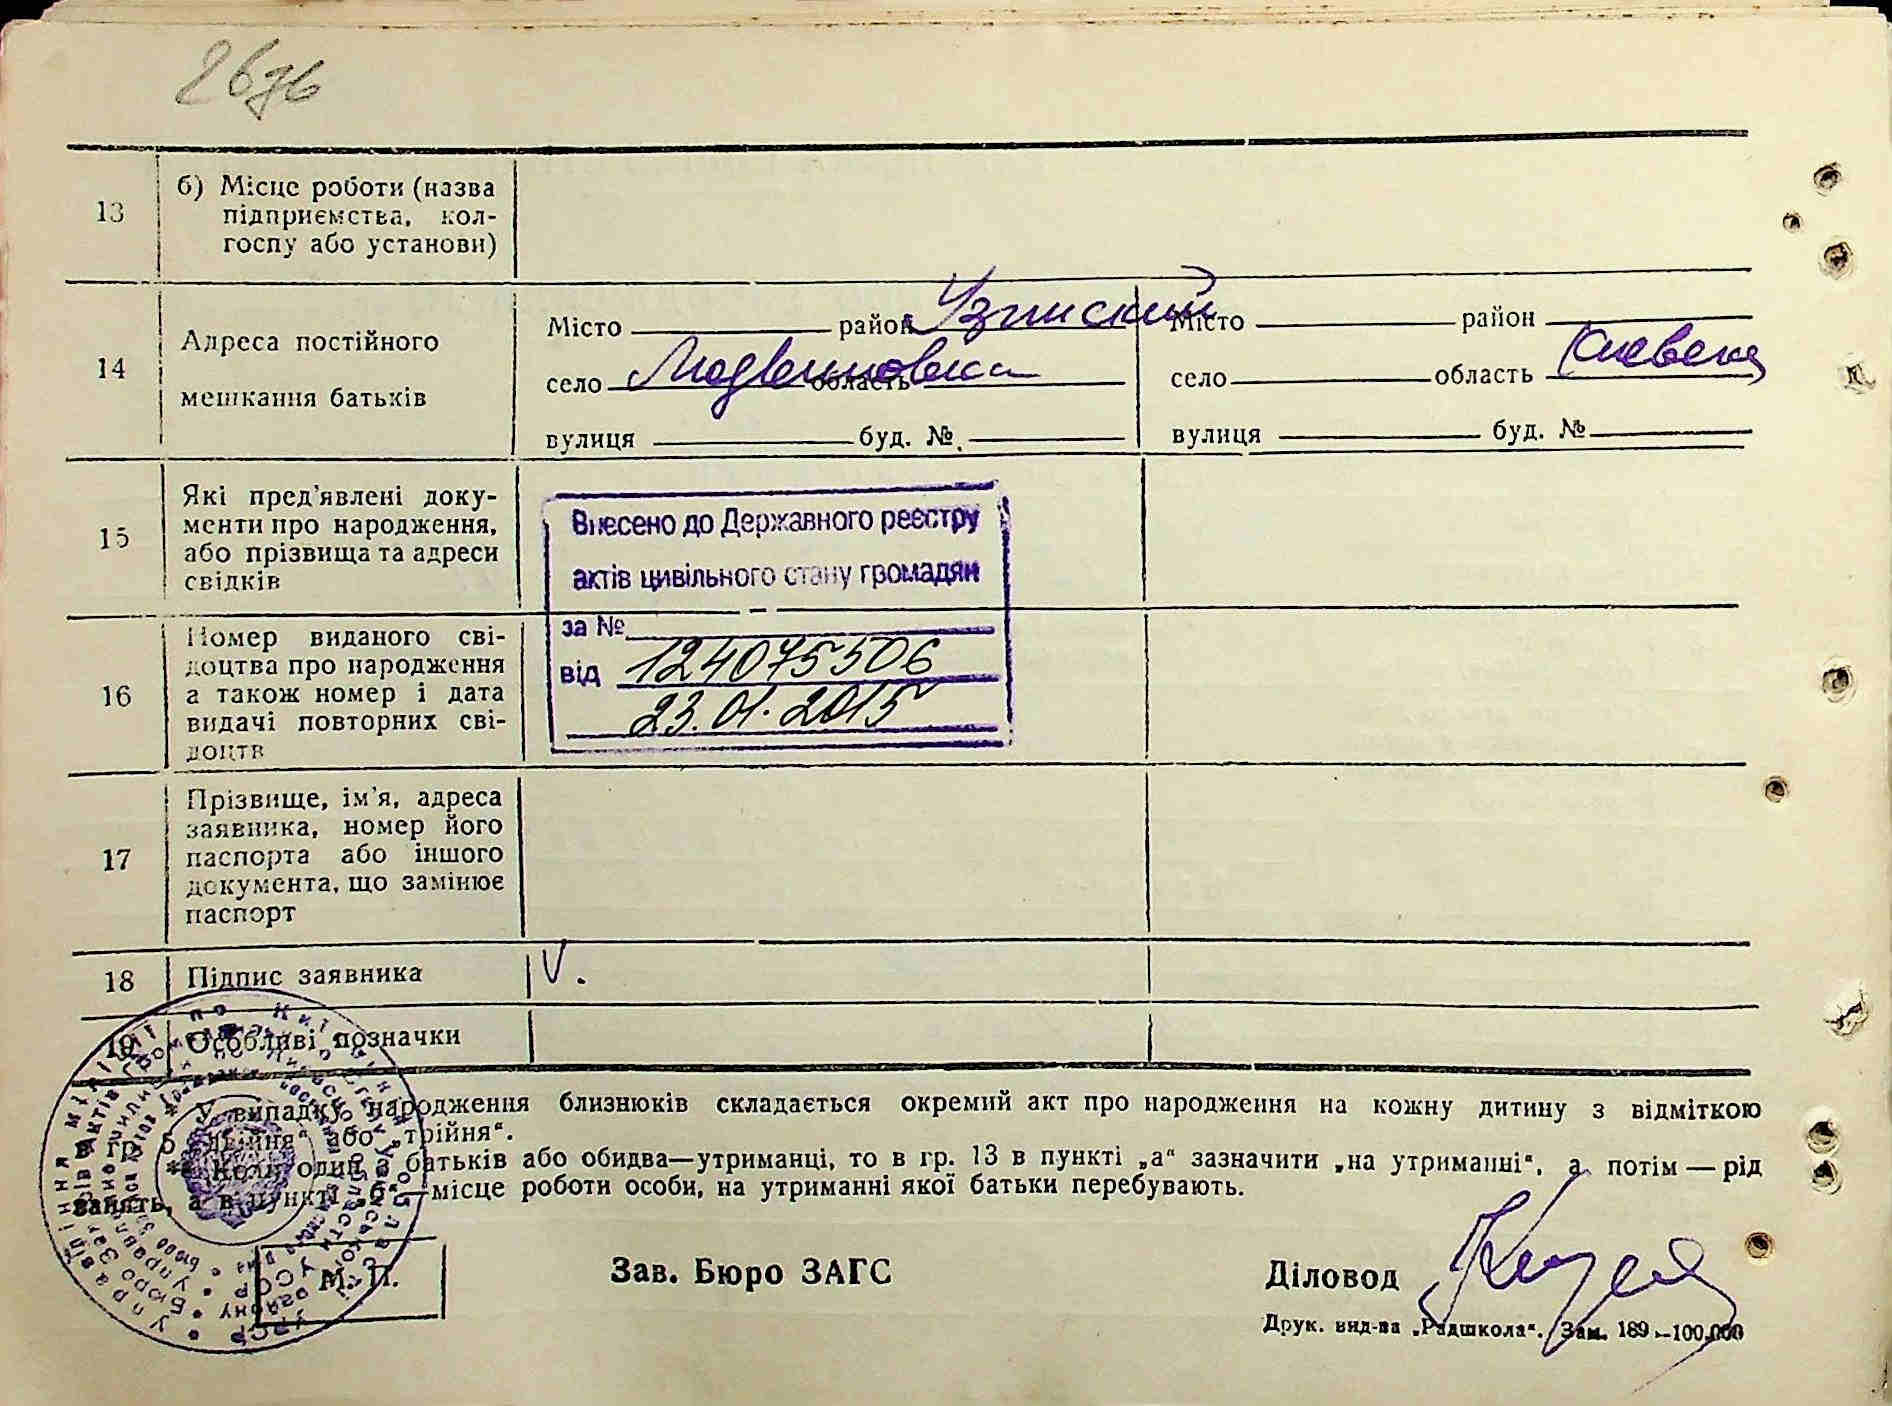 13
б) Місце роботи (назва
підприємства, кол-
госпу або установи)
14
Адреса постійного
мешкання батьків
Місто район Узинский
село Медвиновка область
вулиця буд. №
Місто район
село область Киевская
вулиця буд. №
15
Які пред'явлені доку-
менти про народження,
або прізвища та адреси
свідків
Внесено до Державного реєстру
актів цивільного стану громадян
за №
124075506
від
23.01.2015
16
Номер виданого сві-
доцтва про народження
а також номер і дата
видачі повторних сві-
доцтв
17
Прізвище, ім'я, адреса
заявника, номер його
паспорта або іншого
документа, що замінює
паспорт
18 Підпис заявника V.
19 Особливі позначки
* У випадку народження близнюків складається окремий акт про народження на кожну дитину з відміткою
в гр. 5 „двійня“ або „трійня“.
** Коли один з батьків або обидва—утриманці, то в гр. 13 в пункті „а“ зазначити „на утриманні“, а потім — рід
занять, а в пункті „б“—місце роботи особи, на утриманні якої батьки перебувають.
М. П.
Зав. Бюро ЗАГС
Діловод
Друк. вид-ва „Радшкола“. Зам. 189—100.000